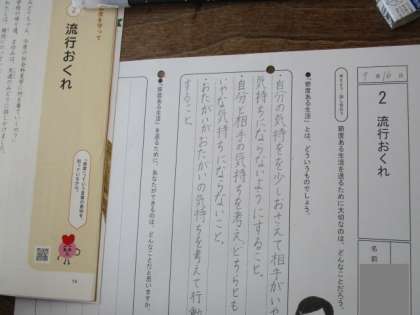 2 流行おくれ
名前
節度ある生活を送るために大切なのは、どんなことだろう。
●「節度ある生活」とは、どういうものでしょう。
・自分の気持をを少しおさえて相手がいや
気持ちにならないようにすること。
・自分と相手の気持ちを考え、どちらとも
いやな気持ちにならないこと。
・おたがいがおたがいの気持ちを考えて行動
すること。
●「節度ある生活」を送るために、あなたができるのは、どんなことだと思いますか。
を守って
流行おくれ